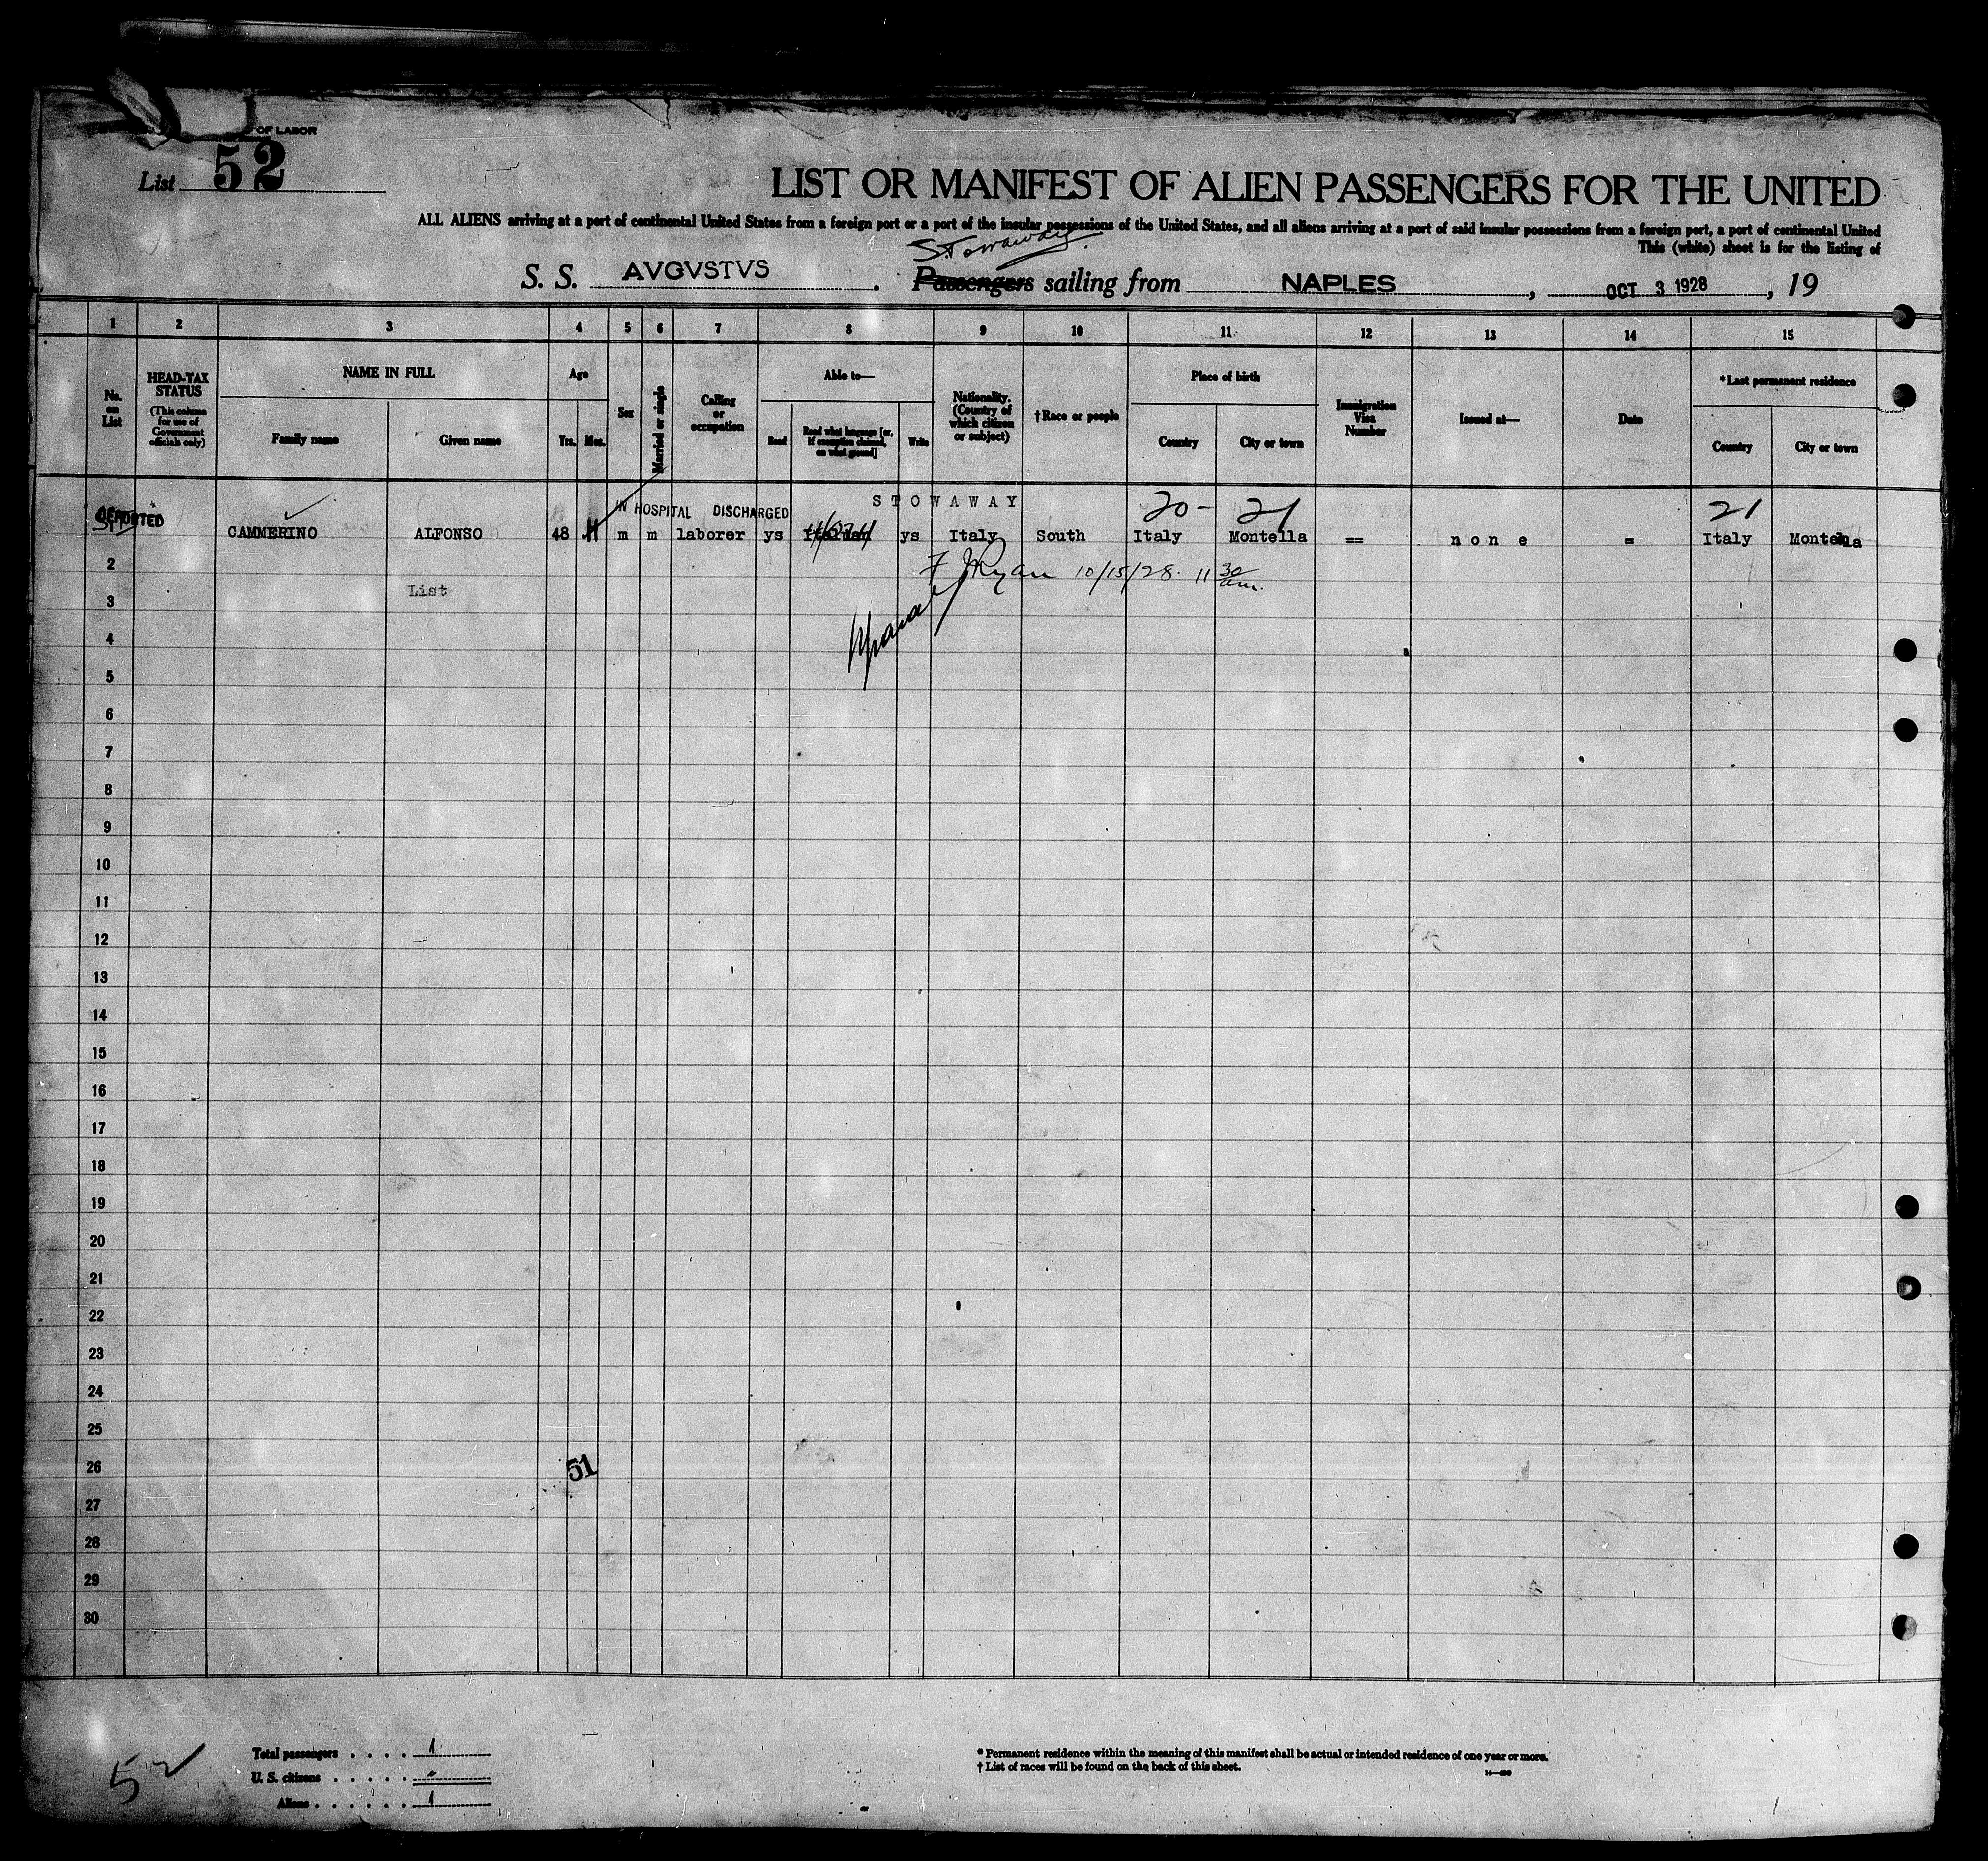 OF LABOR
List 52
LIST OR MANIFEST OF ALIEN PASSENGERS FOR THE UNITED
ALL ALIENS arriving at a port of continental United States from a foreign port or a port of the insular possessions of the United States, and all aliens arriving at a port of said insular possessions from a foreign port, a port of continental United
This (white) sheet is for the listing of
Stowaway
S. S. AVGVSTVS. Passengers sailing from NAPLES, OCT 3 1928, 19
1 2 3 4 5 6 7 8 9 10 11 12 13 14 15
No. on List
HEAD-TAX STATUS (This column for use of Government officials only)
NAME IN FULL
Family name
Given name
Age
Yrs.
Mos.
Sex
Married or single
Calling or occupation
Able to—
Read
Read what language [or, if exemption claimed, on what ground]
Write
Nationality. (Country of which citizen or subject)
†Race or people
Place of birth
Country
City or town
Immigration Visa Number
Issued at—
Date
*Last permanent residence
Country
City or town
IN HOSPITAL DISCHARGED STOWAWAY 20- 21 21
DEPORTED CAMMERINO ALFONSO 48 H m m laborer ys Italian ys Italy South Italy Montella == none = Italy Montella
2 F J Ryan 10/15/28. 11 30 am.
List
3
4
5
6
7
8
9
10
11
12
13
14
15
16
17
18
19
20
21
22
23
24
25
26 51
27
28
29
30
52
Total passengers . . . . 1
U. S. citizens . . . . . "
Aliens . . . . . . 1
* Permanent residence within the meaning of this manifest shall be actual or intended residence of one year or more.
† List of races will be found on the back of this sheet.